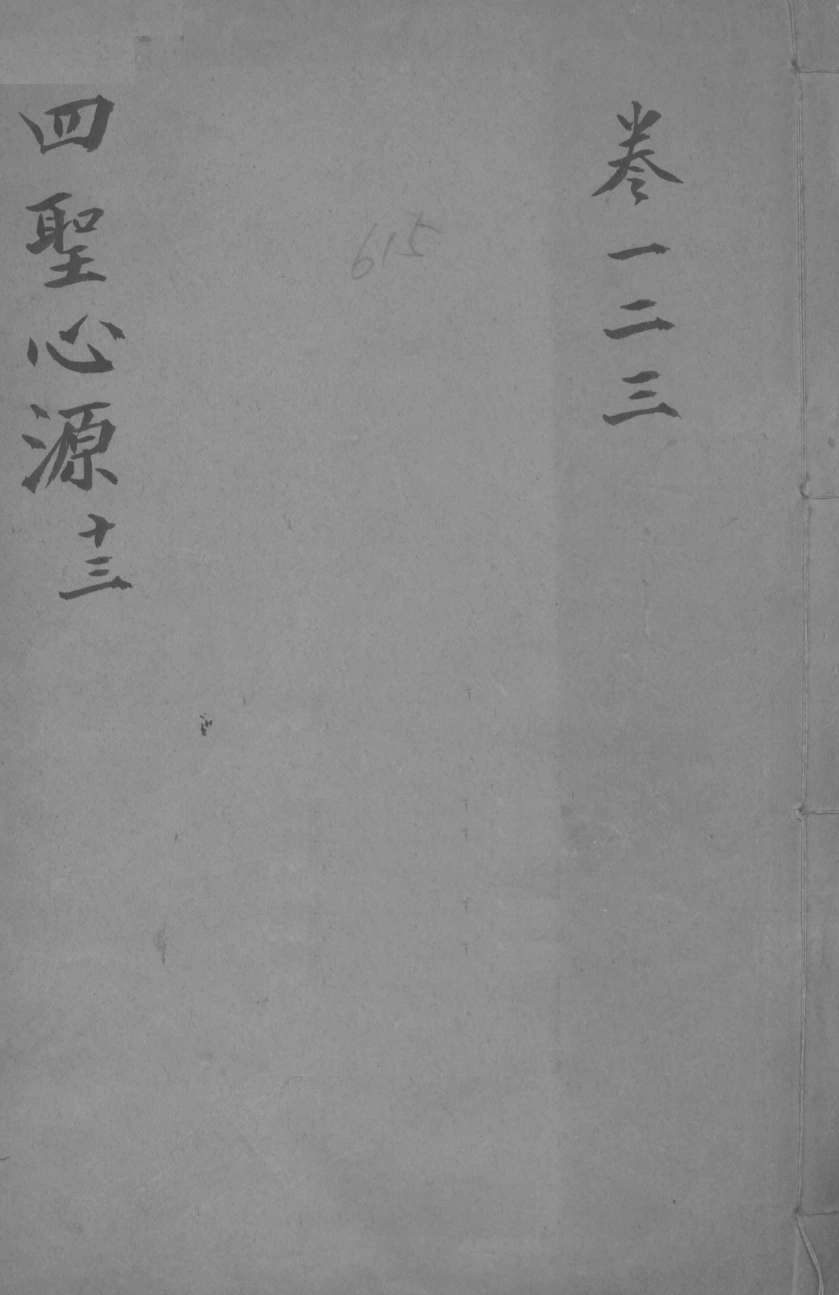 卷一二三
615
四聖心源十三